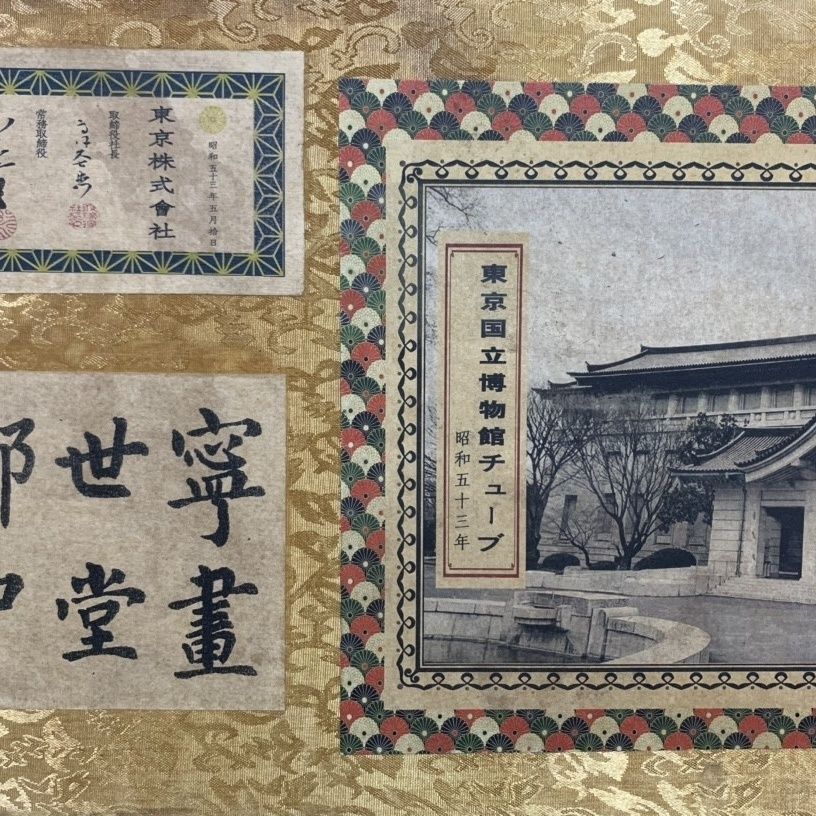 昭和五十三年五月拾日
東京株式會社
取締役社長
常務取締役
東京国立博物館チューブ
昭和五十三年
寧畫
世堂